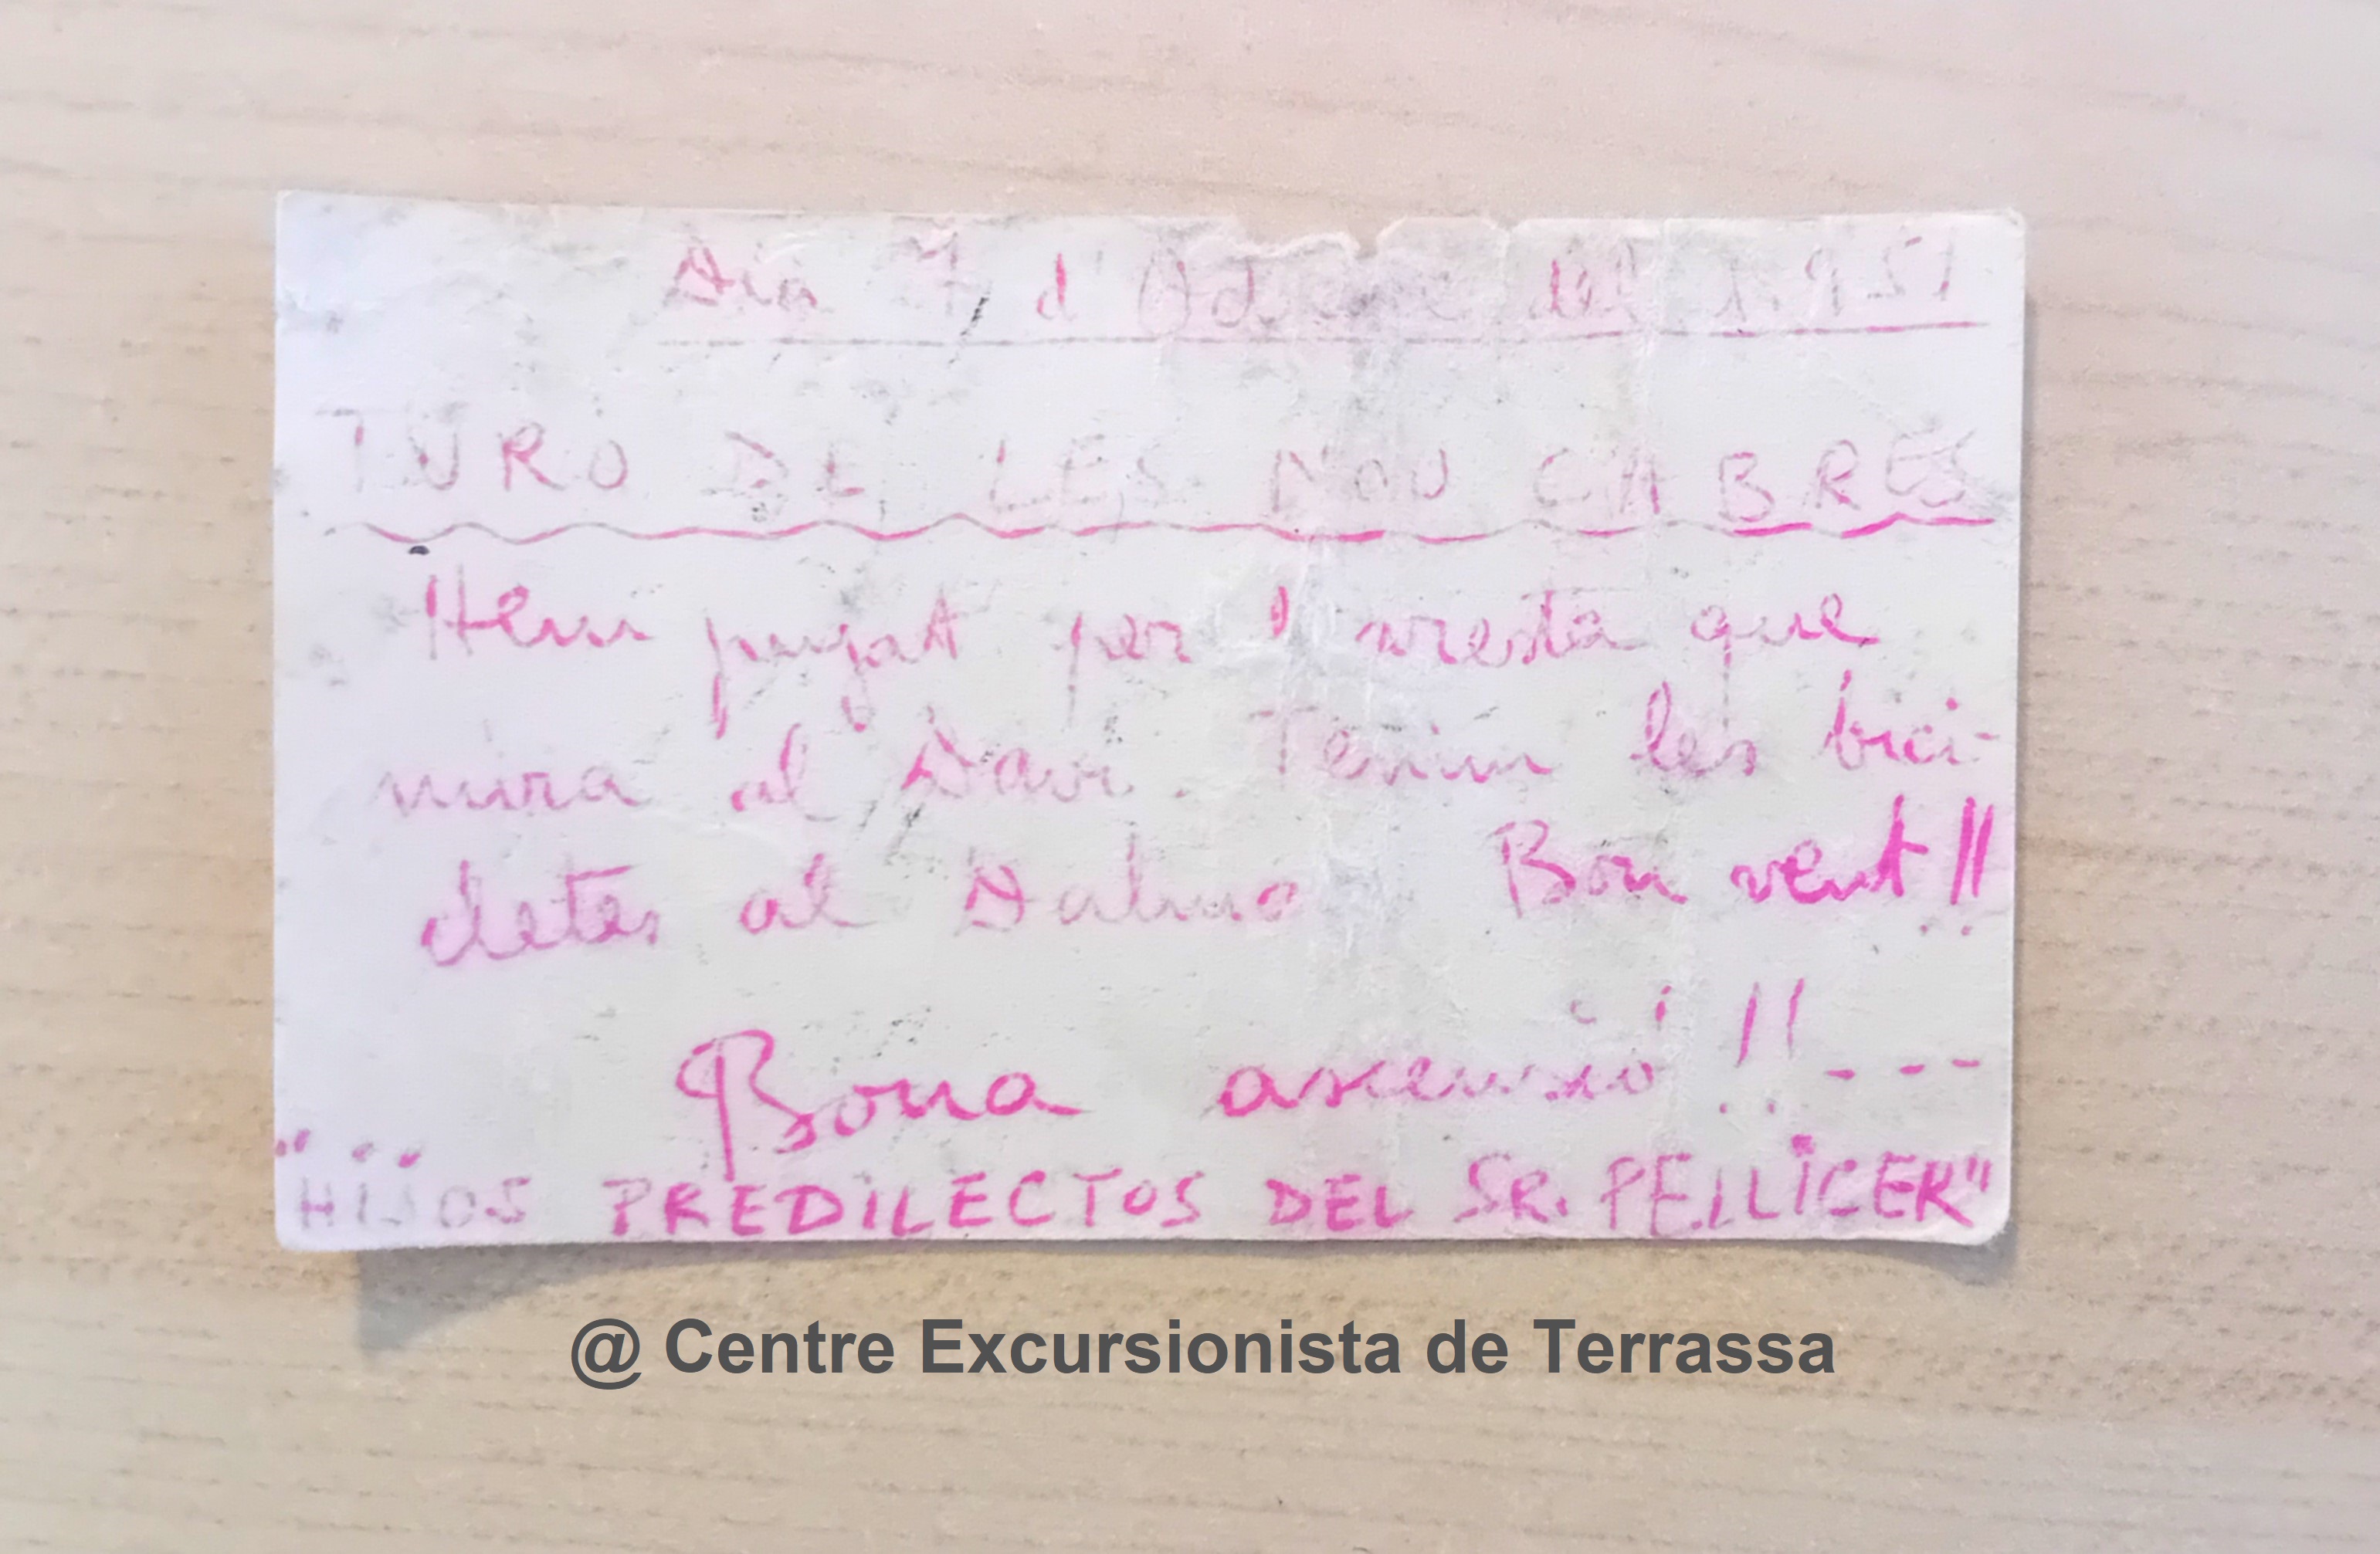 Dia 7, d'Octubre del 1.951
TURO DE LES NOU CABRES
Hem pujat per l'aresta que
mira al Davi. Tenim les bici-
cletes al Dalmo Bon vent!!
Bona ascensió!!---
"HIJOS PREDILECTOS DEL SR. PELLICER"
@ Centre Excursionista de Terrassa